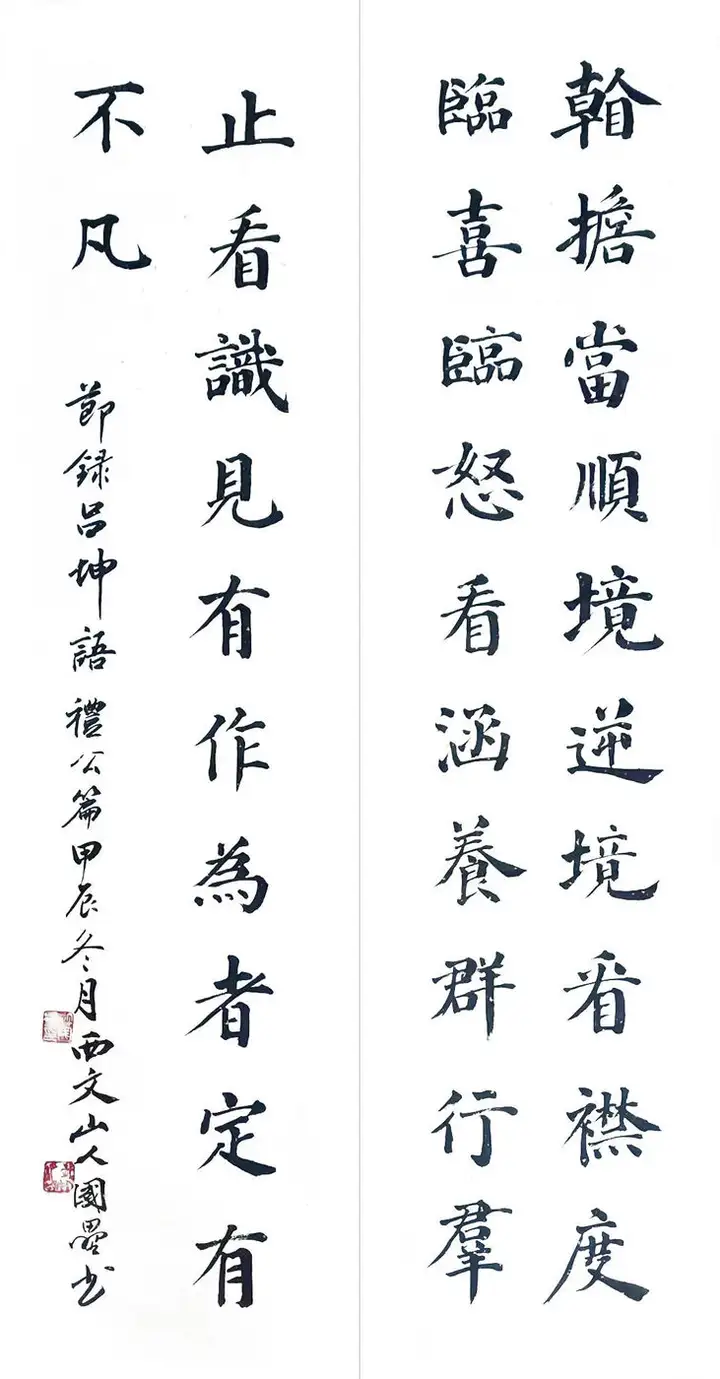 幹擔當順境逆境看襟度
臨喜臨怒看涵養群行羣
止看識見有作為者定有
不凡
節録吕坤語禮公篇甲辰冬月西文山人國墨书